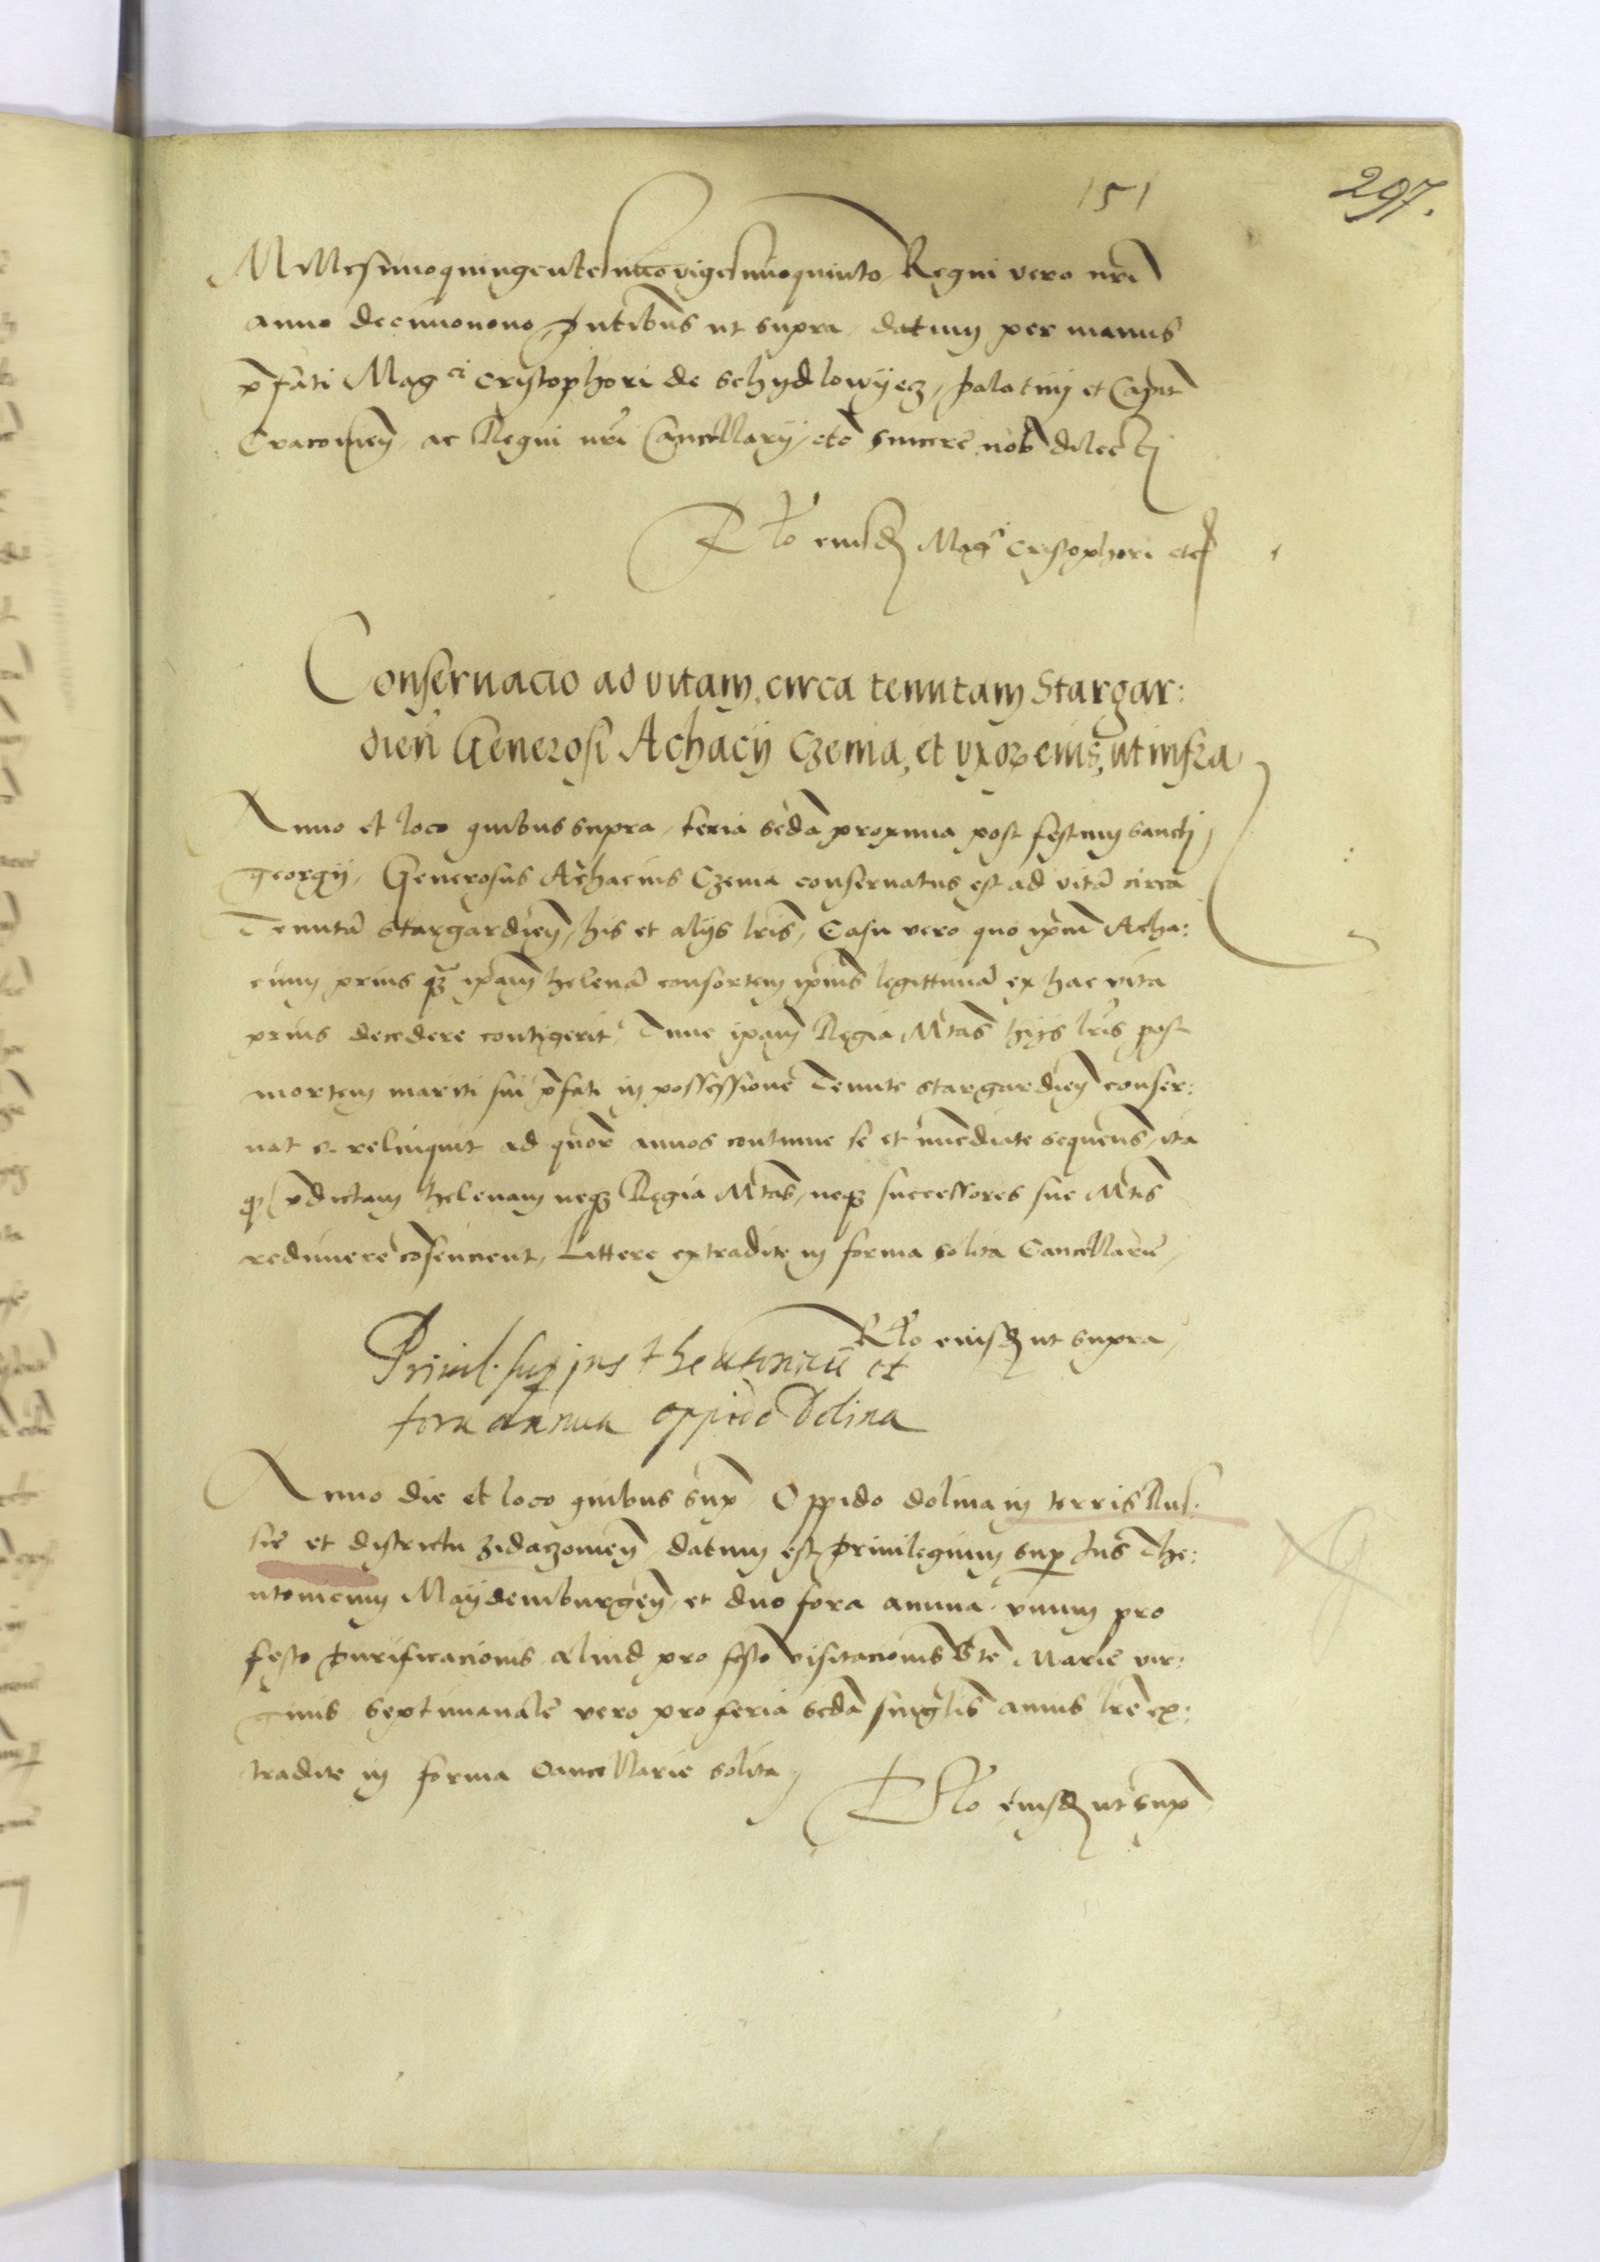 151
297.
Millesimoquingentesimovigesimoquinto, Regni vero nrī
anno decimonono p̄ntibus ut supra, datum per manus
p̄fati Magci Cristophori de Schydlowyecz, palatinj et Capit
Cracouień, ac Regni nrī Cancellarij, etc̄ sincere nob̄ dilectj
Rlo eiusdē Magci Cristophori etc
Conseruacio ad vitam, circa tenutam Stargar:
dień Generosi Achacij Czema, et vxoꝝ eius, ut infra
Anno et loco quibus supra, feria sēda proxima post festum sanctj
georgij, Generosus Achacius Czema conseruatus est ad vitā circa
Tenutā Stargardień, his et alijs lris, Casu vero quo ipm̄ Acha:
cium prius qꝫ ipsam helenā consortem ipius legittimā ex hac vita
prius decedere contigerit, Tunc ipam Regia Mtas hijs lris post
mortem mariti sui p̄fati in possessione Tenute stargardień conser:
uat et relinquit ad quor annos continue se et immediate sequens, ita
ꝙ p̄dictam helenam neqꝫ Regia Mtas, neqꝫ successores sue Mtis
redimere cōsencient, Littere extradite in forma solita Cancellarie,
Rlo eiusdē ut supra,
Priuil. sup jus theutonicū et
fora annua oppido Dolina
Anno die et loco quibus sup̄ Oppido dolina in terris Rus:
sie et districtu zidaczouień, datum est Priuilegium sup Jus The:
utonicum Maydemburgeń, et duo fora annua, vnum pro
festo Purificacionis aliud pro festo visitacionis Ste Marie vir:
ginis septimanale vero pro feria sēda singlis annis lre ex:
tradite in forma Cancellarie solita,
Rlo eiusdē ut sup̄